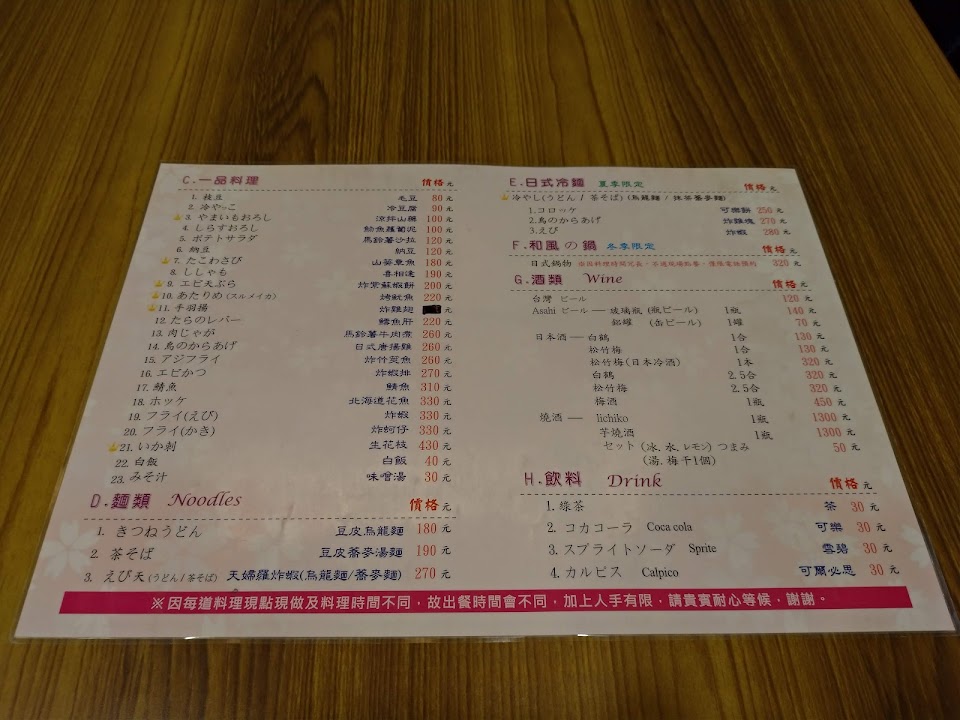 C.一品料理 價格 元
1. 枝豆 毛豆 80 元
2. 冷やっこ 冷豆腐 90 元
3. やまいもおろし 涼拌山藥 100 元
4. しらすおろし 魩魚蘿蔔泥 100 元
5. ポテトサラダ 馬鈴薯沙拉 120 元
6. 納豆 納豆 120 元
7. たこわさび 山葵章魚 180 元
8. ししゃも 喜相逢 190 元
9. エビ天ぷら 炸紫蘇蝦餅 200 元
10. あたりめ (スルメイカ) 烤魷魚 220 元
11. 手羽揚 炸雞翅 元
12. たらのレバー 鱈魚肝 220 元
13. 肉じゃが 馬鈴薯牛肉煮 260 元
14. 鳥のからあげ 日式唐揚雞 260 元
15. アジフライ 炸竹莢魚 260 元
16. エビかつ 炸蝦排 270 元
17. 鯖魚 鯖魚 310 元
18. ホッケ 北海道花魚 330 元
19. フライ(えび) 炸蝦 330 元
20. フライ(かき) 炸蚵仔 330 元
21. いか刺 生花枝 430 元
22. 白飯 白飯 40 元
23. みそ汁 味噌湯 30 元
D.麵類 Noodles 價格 元
1. きつねうどん 豆皮烏龍麵 180 元
2. 茶そば 豆皮蕎麥湯麵 190 元
3. えび天 (うどん / 茶そば) 天婦羅炸蝦(烏龍麵/蕎麥麵) 270 元
E.日式冷麵 夏季限定 價格 元
冷やし(うどん / 茶そば) (烏龍麵 / 抹茶蕎麥麵)
1.コロッケ 可樂餅 250 元
2.鳥のからあげ 炸雞塊 270 元
3.えび 炸蝦 280 元
F.和風の鍋 冬季限定 價格 元
日式鍋物 320 元
G.酒類 Wine 價格 元
台灣 ビール 120 元
Asahi ビール ― 玻璃瓶 (瓶ビール) 1瓶 140 元
鋁罐 (缶ビール) 1罐 70 元
日本酒 ― 白鶴 1合 130 元
松竹梅 1合 130 元
松竹梅(日本冷酒) 1本 320 元
白鶴 2.5合 320 元
松竹梅 2.5合 320 元
梅酒 1瓶 450 元
燒酒 ― Iichiko 1瓶 1300 元
芋燒酒 1瓶 1300 元
セット (冰, 水, レモン) つまみ 50 元
(湯, 梅干1個)
H.飲料 Drink 價格 元
1. 綠茶 茶 30 元
2. コカコーラ Coca cola 可樂 30 元
3. スプライトソーダ Sprite 雪碧 30 元
4. カルピス Calpico 可爾必思 30 元
※因每道料理現點現做及料理時間不同，故出餐時間會不同，加上人手有限，請貴賓耐心等候，謝謝。